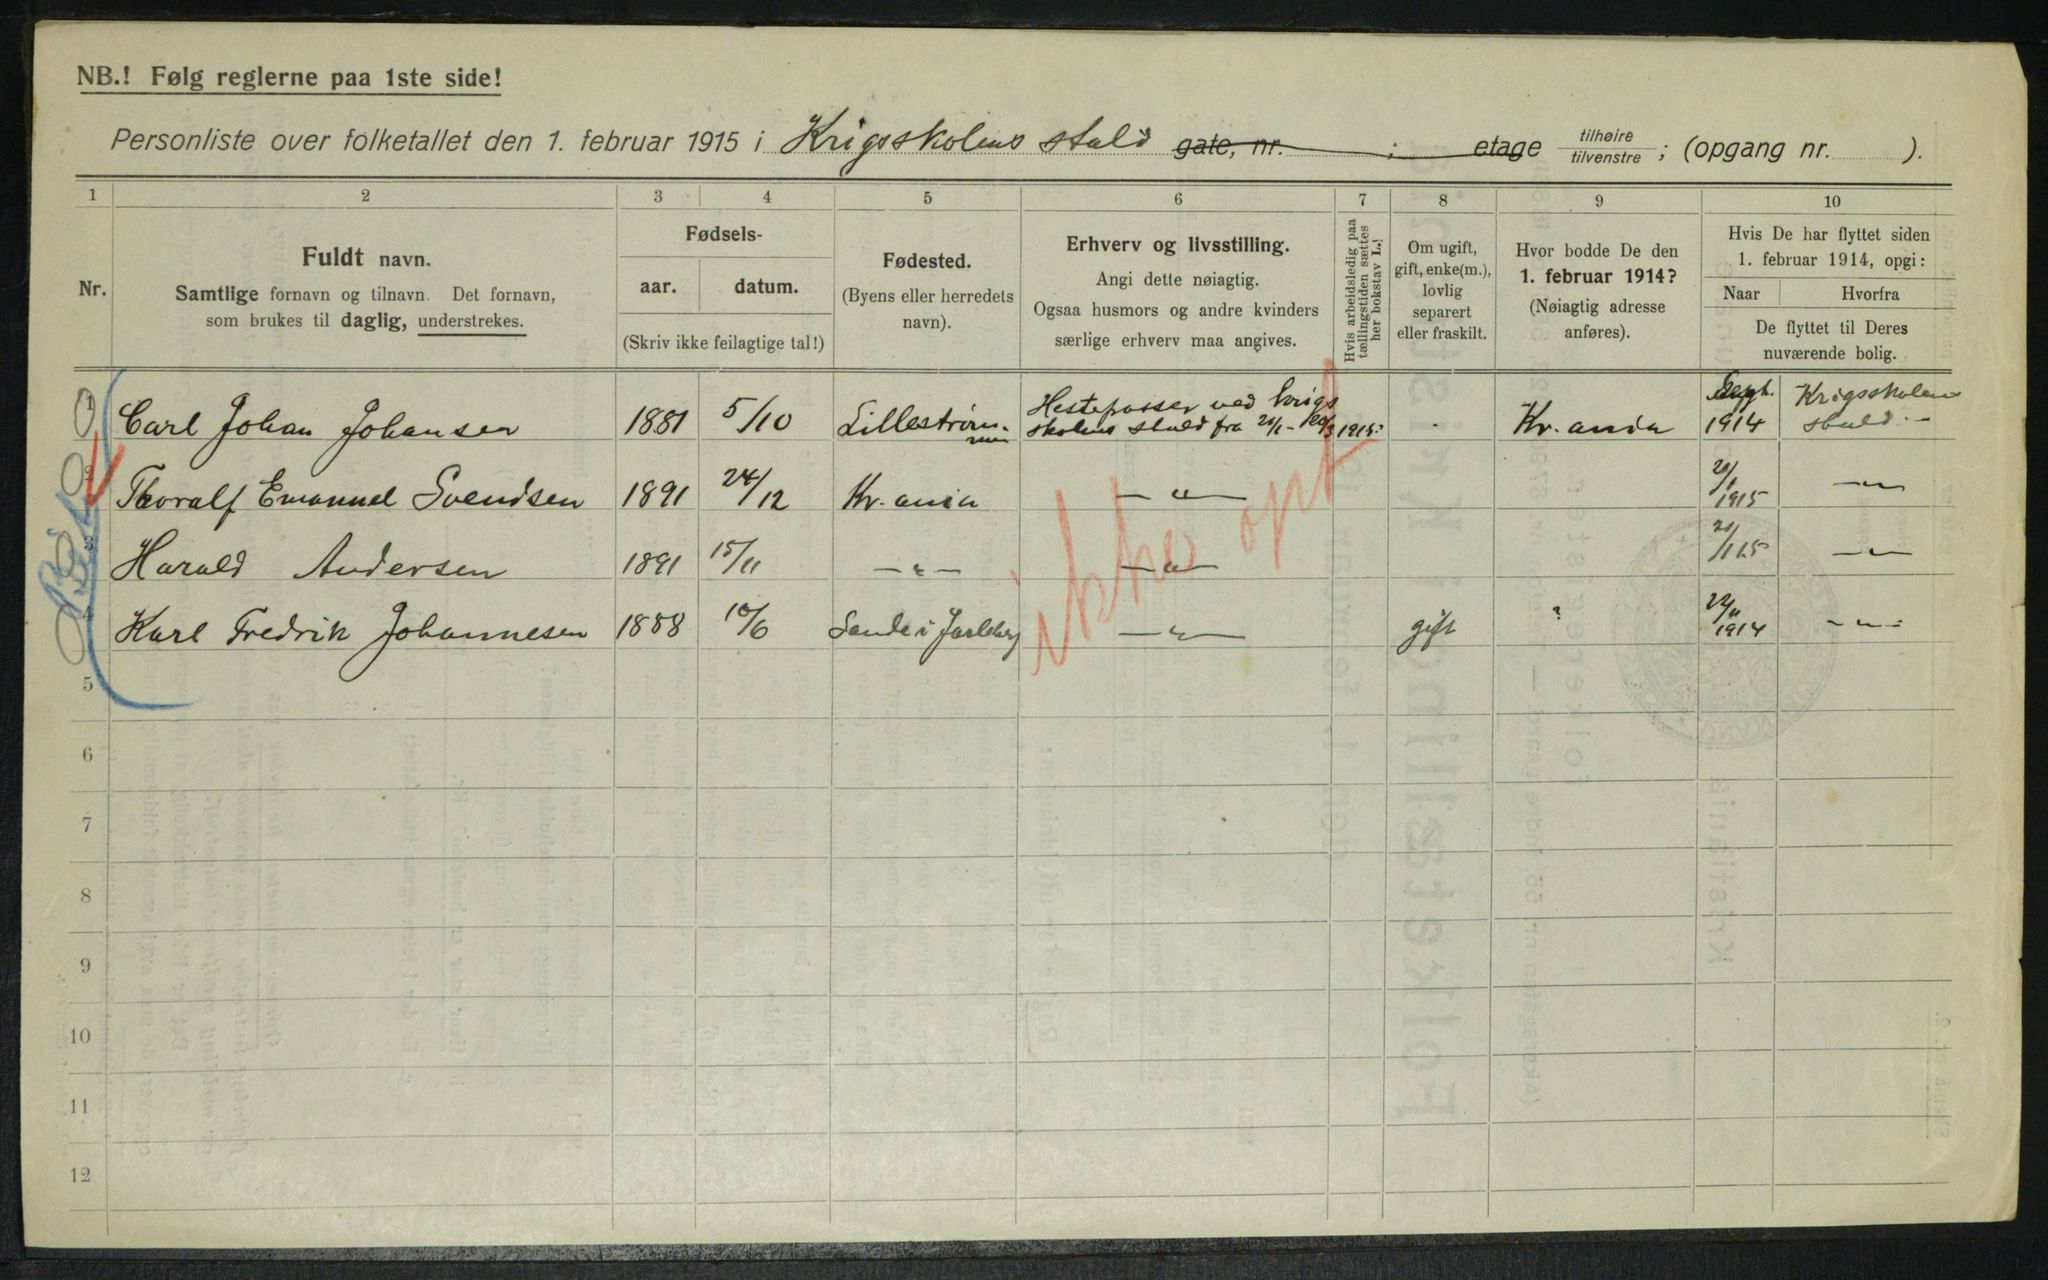 NB.! Følg reglerne paa 1ste side!
Personliste over folketallet den 1. februar 1915 i Krigsskolens stald gate, nr. ; etage tilhøire tilvenstre ; (opgang nr. ).
1 2 3 4 5 6 7 8 9 10
Nr.
Fuldt navn.
Samtlige fornavn og tilnavn. Det fornavn,
som brukes til daglig, understrekes.
Fødsels-
aar. datum.
(Skriv ikke feilagtige tal!)
Fødested.
(Byens eller herredets
navn).
Erhverv og livsstilling.
Angi dette nøiagtig.
Ogsaa husmors og andre kvinders
særlige erhverv maa angives.
Hvis arbeidsledig paa
tællingstiden sættes
her bokstav L.!
Om ugift,
gift, enke(m.),
lovlig
separert
eller fraskilt.
Hvor bodde De den
1. februar 1914?
(Nøiagtig adresse
anføres).
Hvis De har flyttet siden
1. februar 1914, opgi:
Naar Hvorfra
De flyttet til Deres
nuværende bolig.
1 Carl Johan Johansen 1881 5/10 Lillestrøm Hestepasser ved krigs
skolens stald fra 20/1 - 20/3 1915 Kr.ania Sept.
1914 Krigsskolens
stald.
2 Thoralf Emanuel Svendsen 1891 24/12 Kr.ania — " — 20/1
1915 — " —
3 Harald Andersen 1891 15/11 — " — — " — 20/1 15 — " —
4 Karl Fredrik Johannesen 1888 10/6 Sande i Jarlsberg — " — gift ? 22/11
1914 — " —
ikke opt
5
6
7
8
9
10
11
12